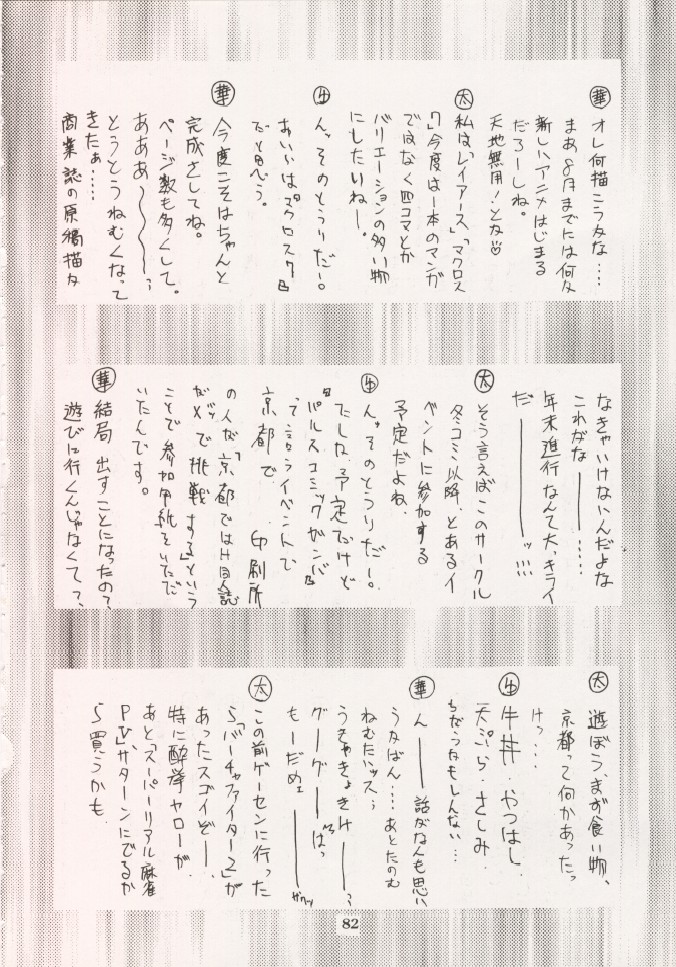 華 オレ何描こうかな……
まあ8月までには何か
新しいアニメはじまる
だろーしね。
天地無用!とか♡
太 私は「レイアース」「マクロス
7」今度は一本のマンガ
ではなく四コマとか
バリエーションの多い物
にしたいねー。
牛 んッ。そのとうりだー。
あいいは『マクロス7』
だと思う。
華 今度こそはちゃんと
完成さしてね。
ページ数も多くして。
あああ〜〜〜〜
とうとうねむくなって
きたぁ……
商業誌の原稿描か
なきゃいけないんだよな
これがな――……
年末進行なんて大、キライ
だ――――ッ!!!
太 そう言えばこのサークル
冬コミ以降、とあるイ
ベントに参加する
予定だよね、
牛 んッ。そのとうりだー。
たしか、予定だけど
『パルスコミックガンバ』
って言うライベントで
京都で 印刷所
の人が「京都ではH同人誌
がダメで挑戦する」という
ことで参加用紙をいただ
いたんです。
華 結局 出すことになったの?
遊びに行くんじゃなくて?、
太 遊ぼう、まず食い物、
京都って何かあったっ
けっ……
牛 牛丼・やつはし、
天ぷら・さしみ、
ちがうかもしんない…
華 ん――話がなんも思い
うかばん…あとたのむ
ねむたいッス
うきゃきょきけ――
グーグーーはっ
もーだめェ――――ガクッ
太 この前ゲーセンに行った
ら「バーチャファイター2」が
あったスゴイぞ――、
特に酔拳ヤローが、
あと「スーパーリアル麻雀
PV」サターンにでるか
ら買うかも、
82